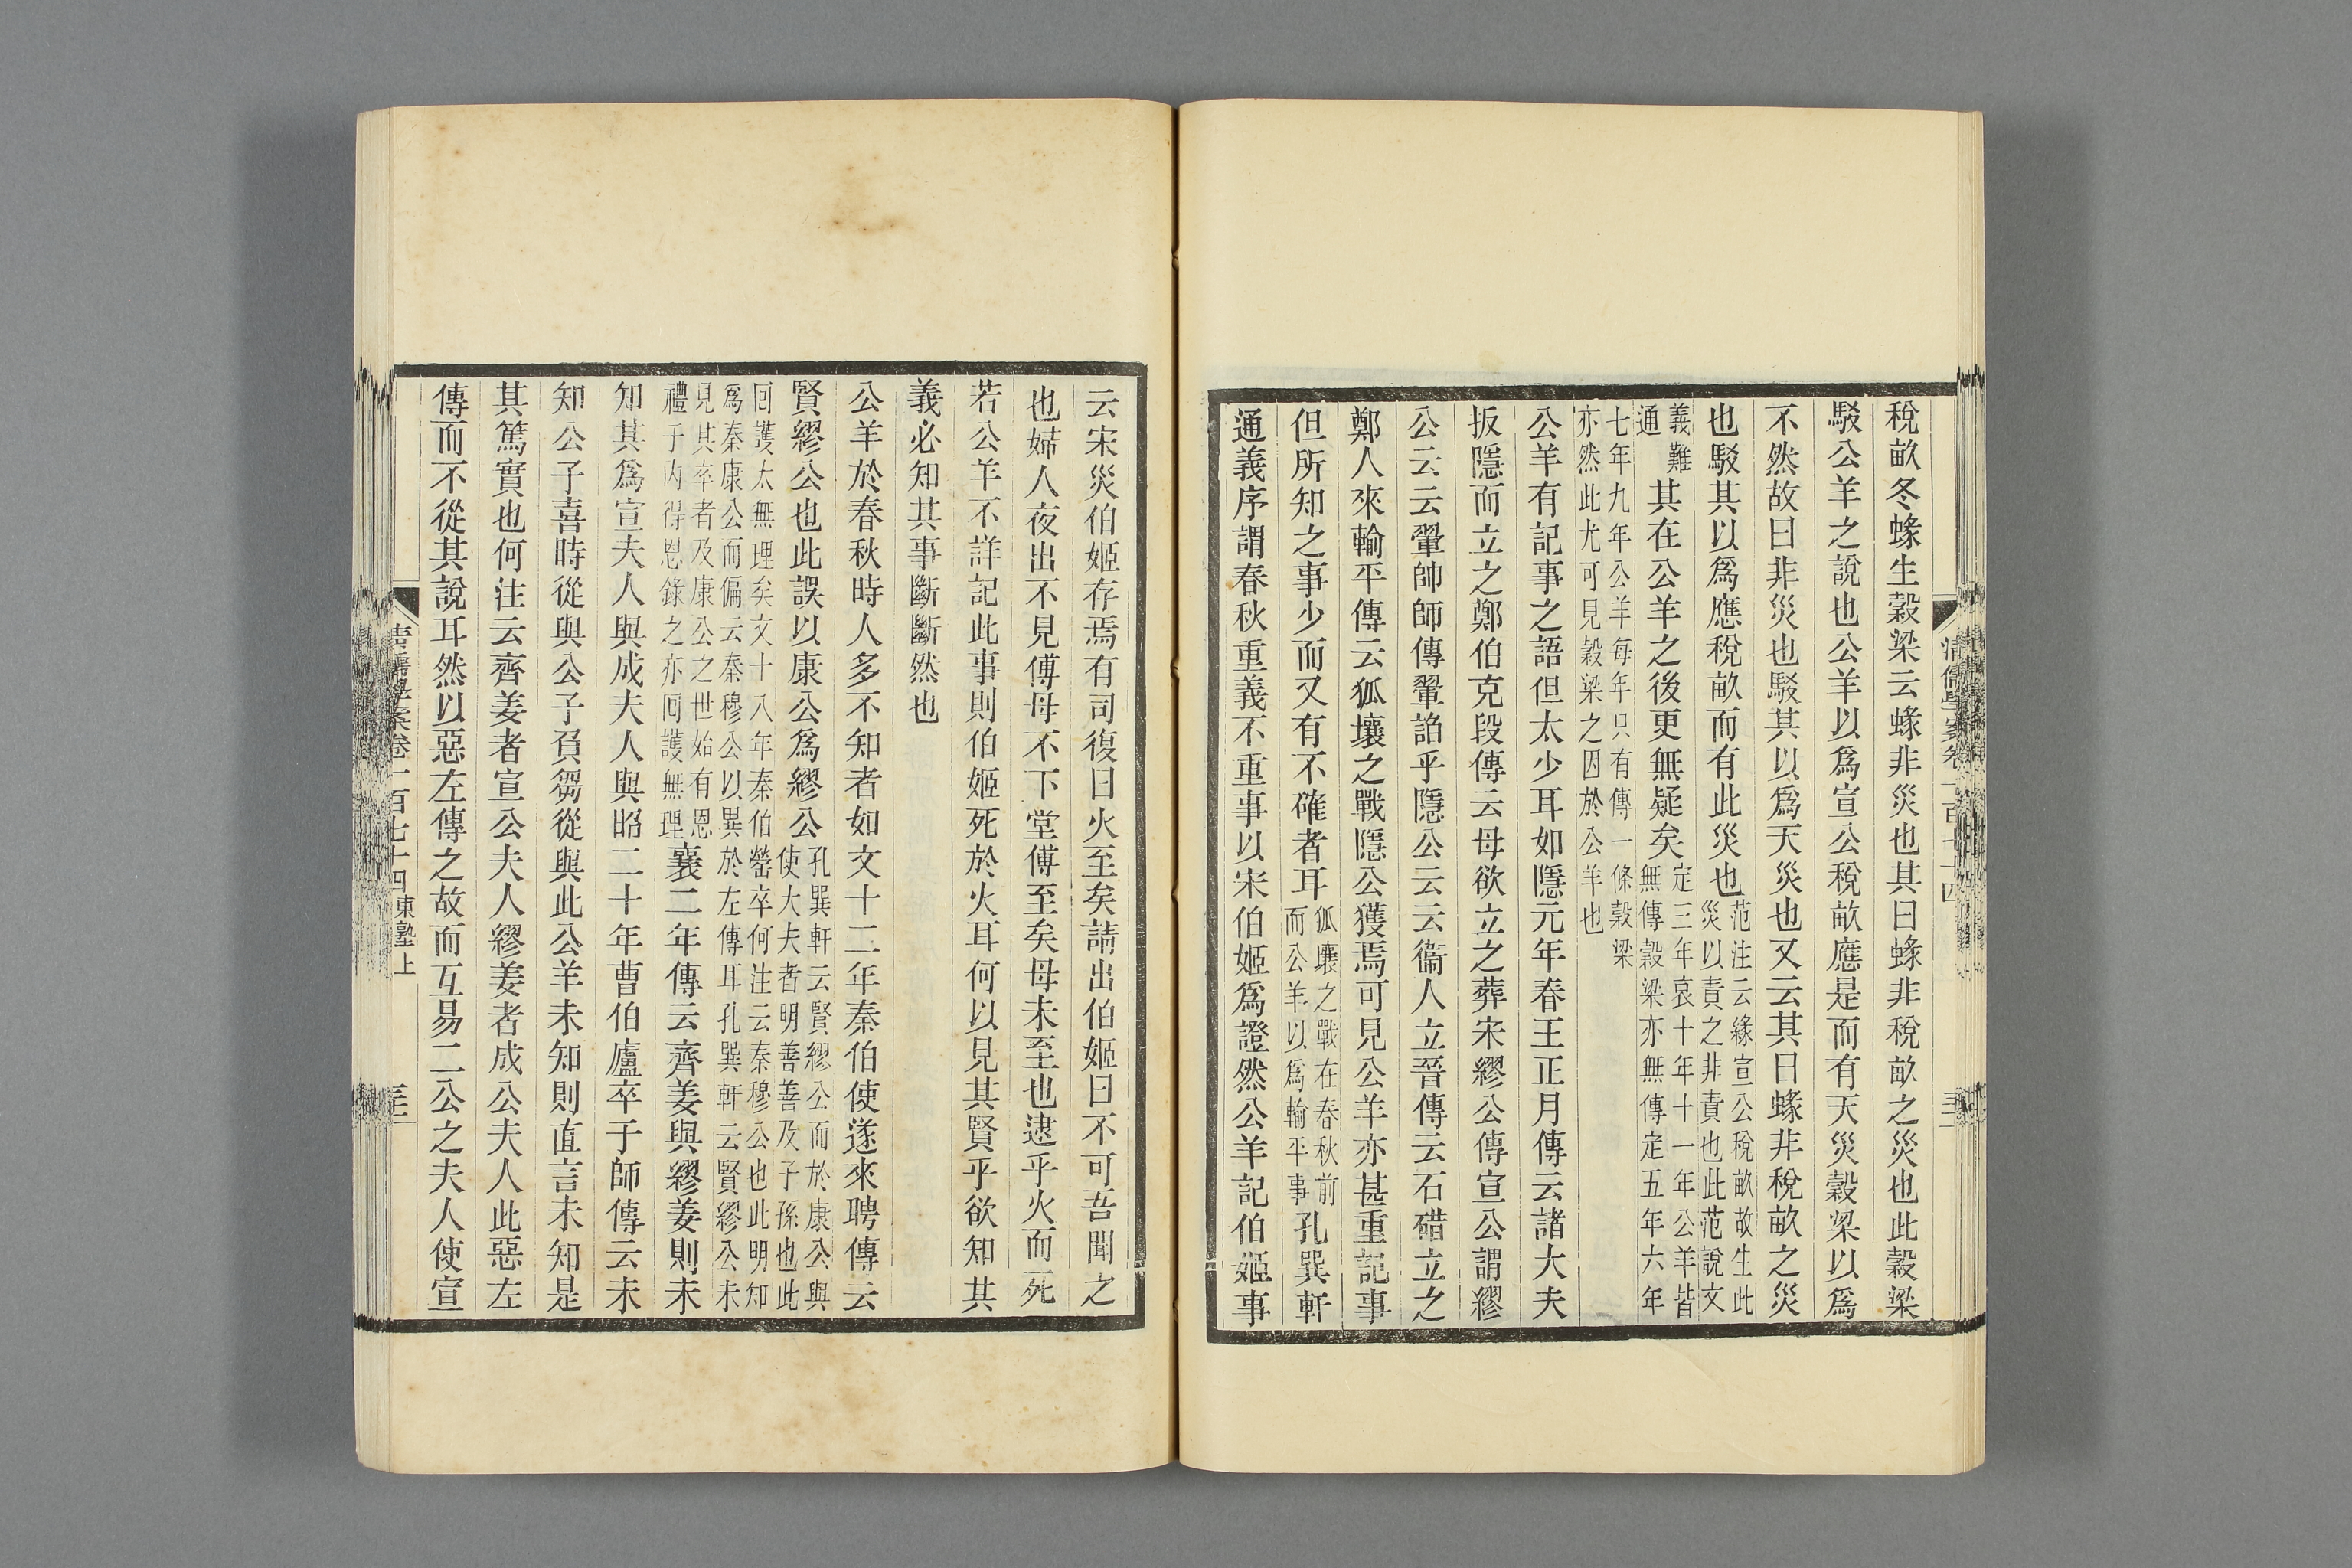 稅畝冬蝝生穀梁云蝝非災也其曰蝝非稅畝之災也此穀梁
駁公羊之說也公羊以爲宣公稅畝應是而有天災穀梁以爲
不然故曰非災也駁其以爲天災也又云其曰蝝非稅畝之災
也駁其以爲應稅畝而有此災也范注云緣宣公稅畝故生此災以責之非責也此范說文
義難通其在公羊之後更無疑矣定三年哀十年十一年公羊皆無傳穀梁亦無傳定五年六年
七年九年公羊每年只有傳一條穀梁亦然此尤可見穀梁之因於公羊也
公羊有記事之語但太少耳如隱元年春王正月傳云諸大夫
扳隱而立之鄭伯克段傳云母欲立之葬宋繆公傳宣公謂繆
公云云翬帥師傳翬諂乎隱公云云衞人立晉傳云石碏立之
鄭人來輸平傳云狐壤之戰隱公獲焉可見公羊亦甚重記事
但所知之事少而又有不確者耳狐壤之戰在春秋前而公羊以爲輸平事孔巽軒
通義序謂春秋重義不重事以宋伯姬爲證然公羊記伯姬事
清儒學案卷一百七十四
云宋災伯姬存焉有司復曰火至矣請出伯姬曰不可吾聞之
也婦人夜出不見傅母不下堂傅至矣母未至也逮乎火而死
若公羊不詳記此事則伯姬死於火耳何以見其賢乎欲知其
義必知其事斷斷然也
公羊於春秋時人多不知者如文十二年秦伯使遂來聘傳云
賢繆公也此誤以康公爲繆公孔巽軒云賢繆公而於康公與使大夫者明善善及子孫也此
回護太無理矣文十八年秦伯罃卒何注云秦穆公也此明知爲秦康公而偏云秦穆公以異於左傳耳孔巽軒云賢繆公未
見其卒者及康公之世始有恩禮于內得恩錄之亦回護無理襄二年傳云齊姜與繆姜則未
知其爲宣夫人與成夫人與昭二十年曹伯廬卒于師傳云未
知公子喜時從與公子負芻從與此公羊未知則直言未知是
其篤實也何注云齊姜者宣公夫人繆姜者成公夫人此惡左
傳而不從其說耳然以惡左傳之故而互易二公之夫人使宣
清儒學案卷一百七十四 東塾上